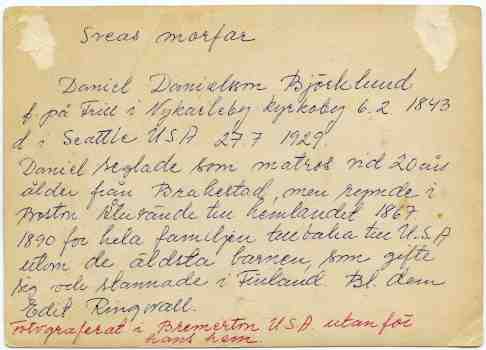 Sveas morfar
Daniel Danielson Björklund
f. på Frill i Nykarleby kyrkoby 6.2 1843
d i Seattle USA 27.7 1929.
Daniel seglade som matros vid 20 års
ålder från Brahestad, men rymde i
Boston Återvände till hemlandet 1867
1890 for hela familjen tillbaka till USA
utom de äldsta barnen, som gifte
sig och stannade i Finland. Bl. dem
Edit Ringwall.
Fotograferat i Bremerton USA utanför
hans hem.